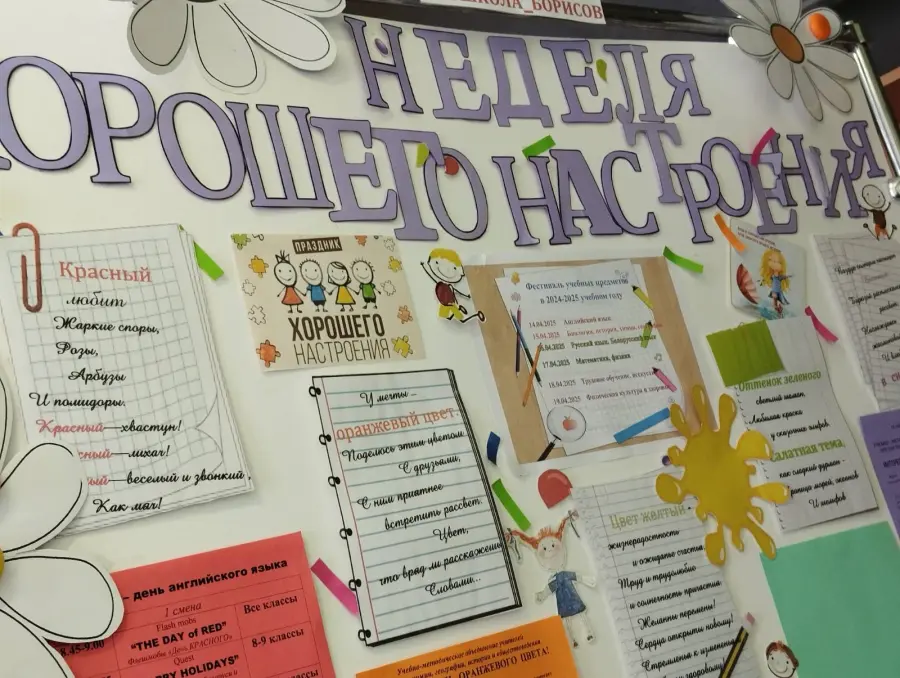 ШКОЛА_БОРИСОВ
НЕДЕЛЯ
ОРОШЕГО НАСТРОЕНИЯ
Красный
любит
Жаркие споры,
Розы,
Арбузы
И помидоры.
Красный—хвастун!
сный—лихач!
ый—веселый и звонкий,
Как мяч!
ПРАЗДНИК
ХОРОШЕГО
НАСТРОЕНИЯ
У мечты –
оранжевый цвет.
Поделюсь этим цветом
С друзьями,
С ним приятнее
встретить рассвет.
Цвет,
что вряд ли расскажешь
Словами...
Фестиваль учебных предметов
в 2024-2025 учебном году
14.04.2025 Английский язык
15.04.2025 Биология, история, география
16.04.2025 Русский язык, белорусский язык
17.04.2025 Математика, физика
18.04.2025 Трудовое обучение, искусство
19.04.2025 Физическая культура и здоровье
Оттенок зеленого
светлый самый,
Любимая краска
у сказочных нифов.
Салатная тема,
И
Цвет желтый
жизнерадостность
и ожидание счастья
Труд и трудолюбие
и солнечность причастия
Желанны перемены!
Сердца открыты новому!
Стремленья к изменению
– день английского языка
1 смена
8.45-9.00
Flash mobs
"THE DAY of RED"
Флешмобы «День КРАСНОГО»
Все классы
Quest
PY HOLIDAYS"
8-9 классы
Учебно-методическое объединение учителей
географии, истории и обществоведения
ОРАНЖЕВОГО ЦВЕТА!